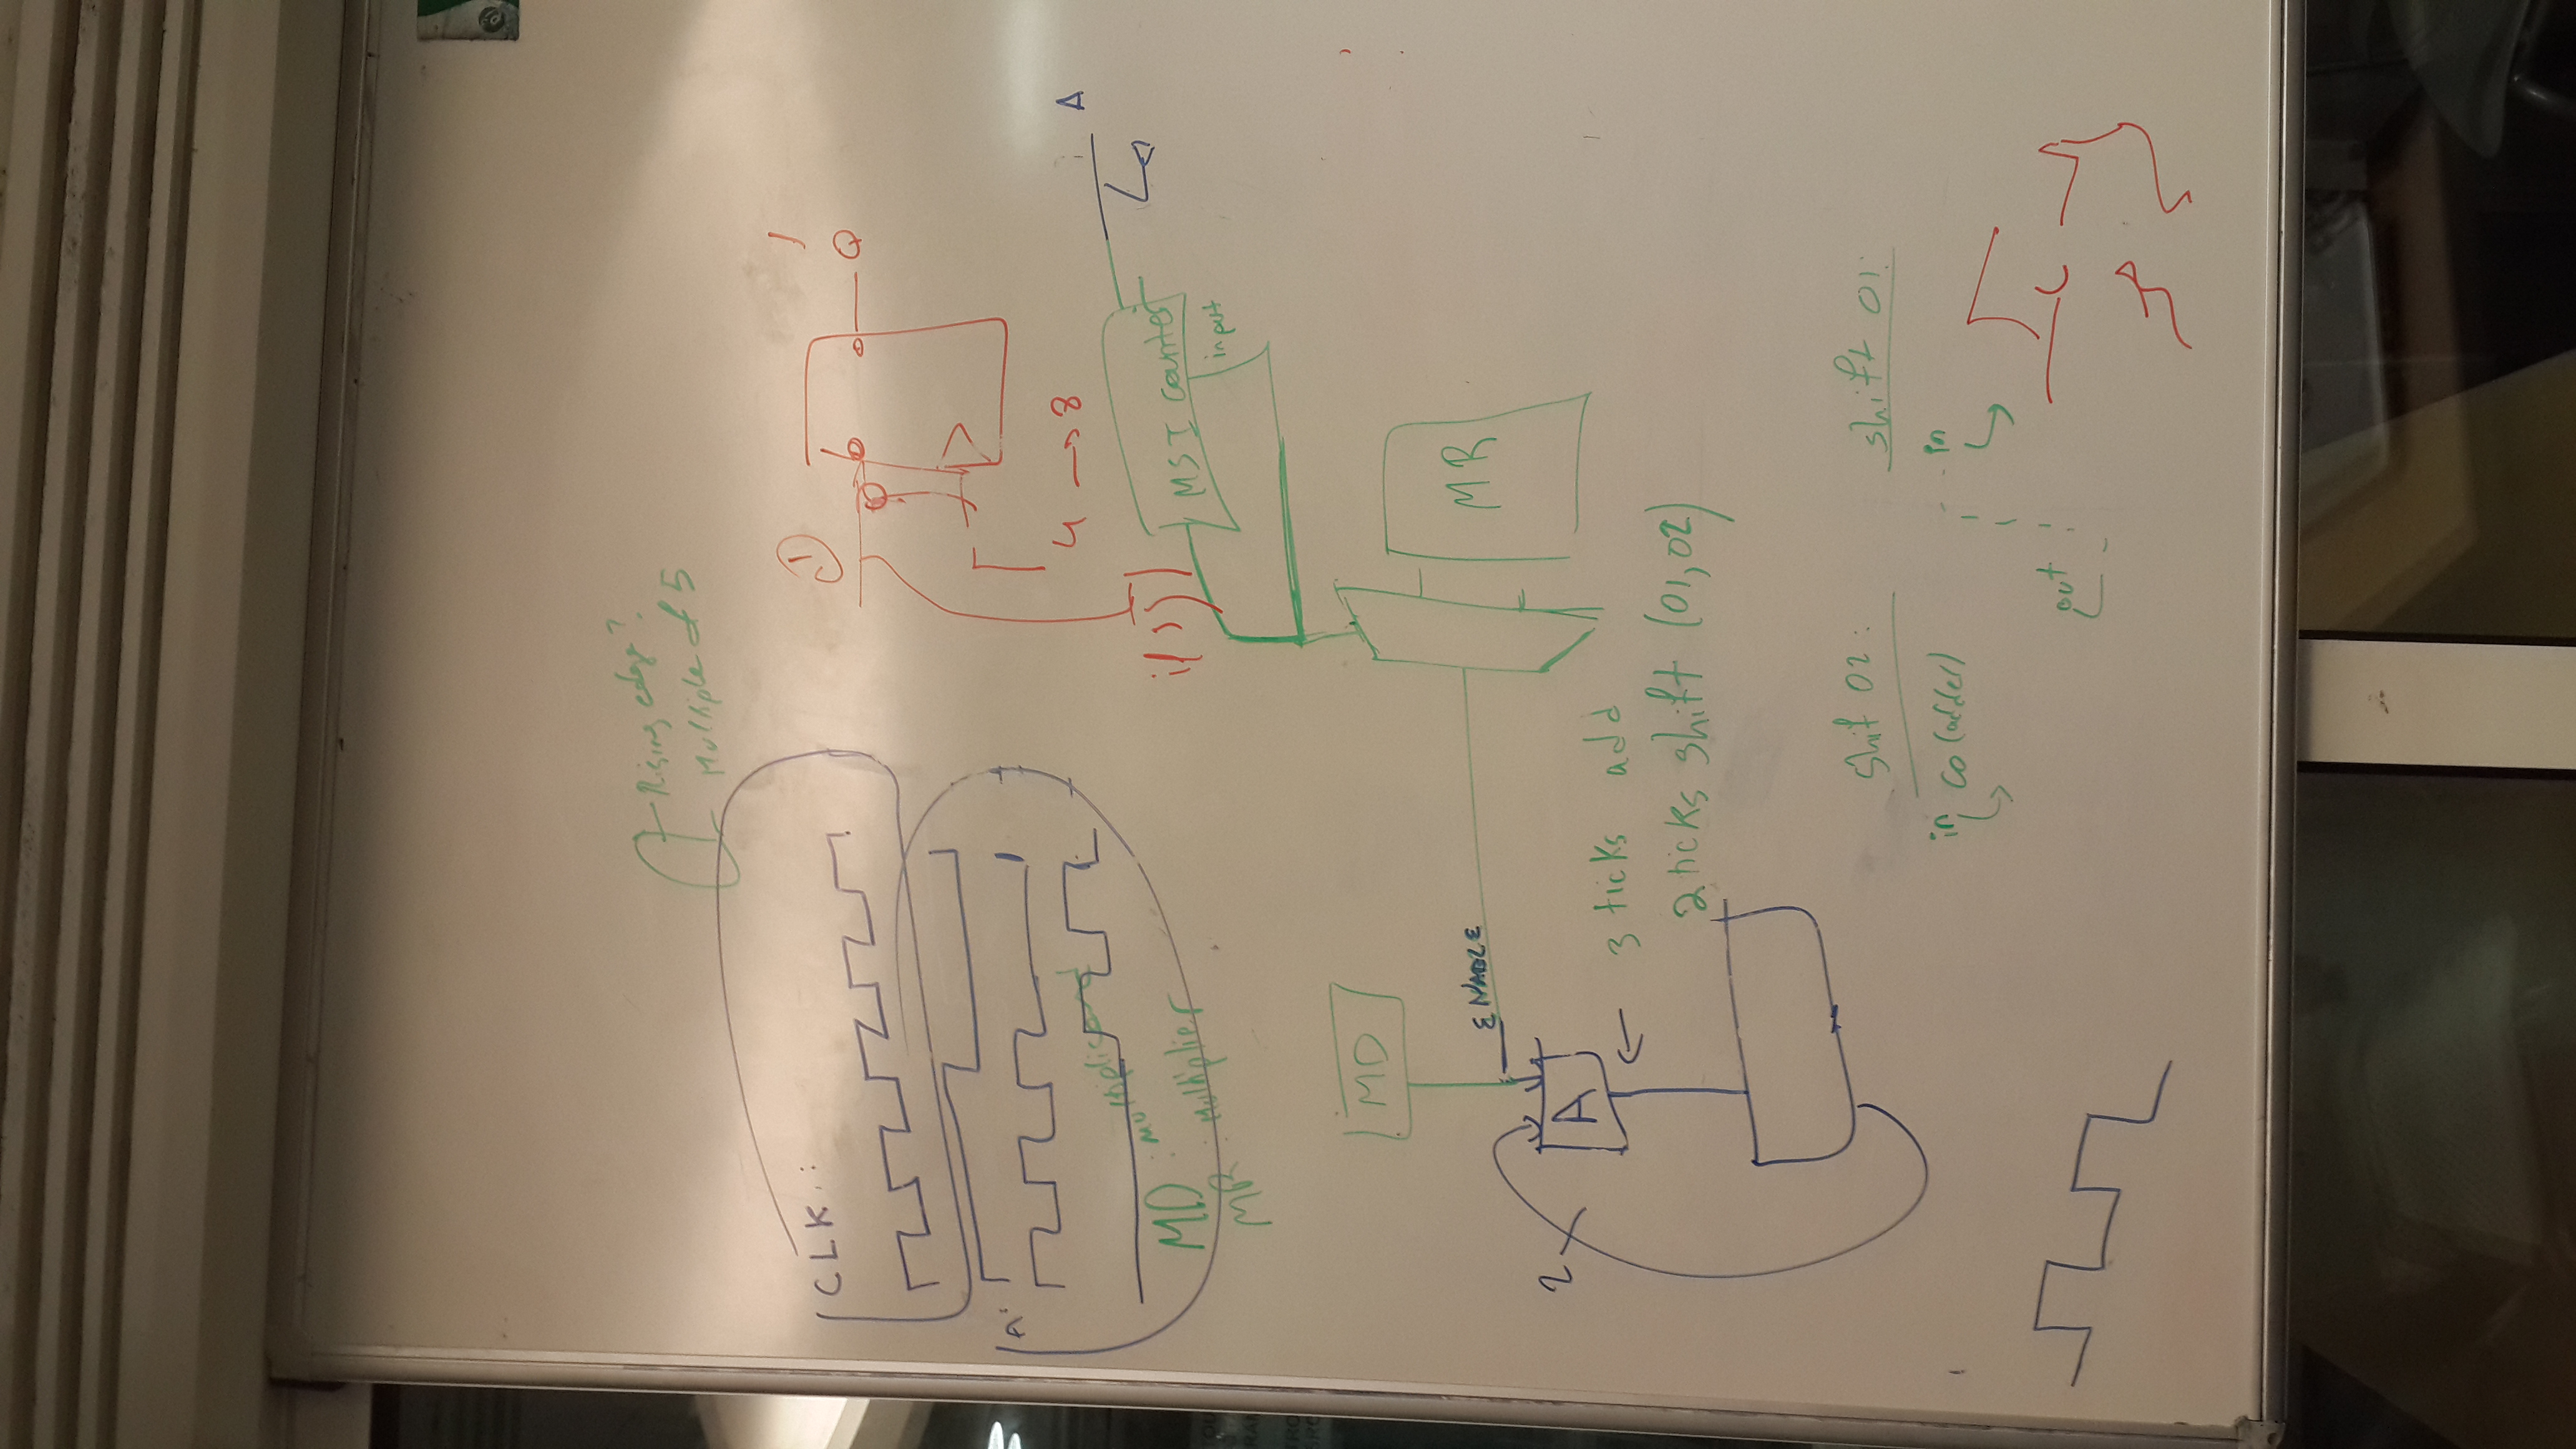 Rising edge?
Multiple of 5
CLK :
A:
MD : Multiplicand
MR : Multiplier
1
1
D
Q
4 → 8
A
MSI Counter
input
MD
ENABLE
MR
2
A
← 3 ticks add
2 ticks shift (01,02)
Shif 02 :
in
Co (adder)
shift 01:
in
out